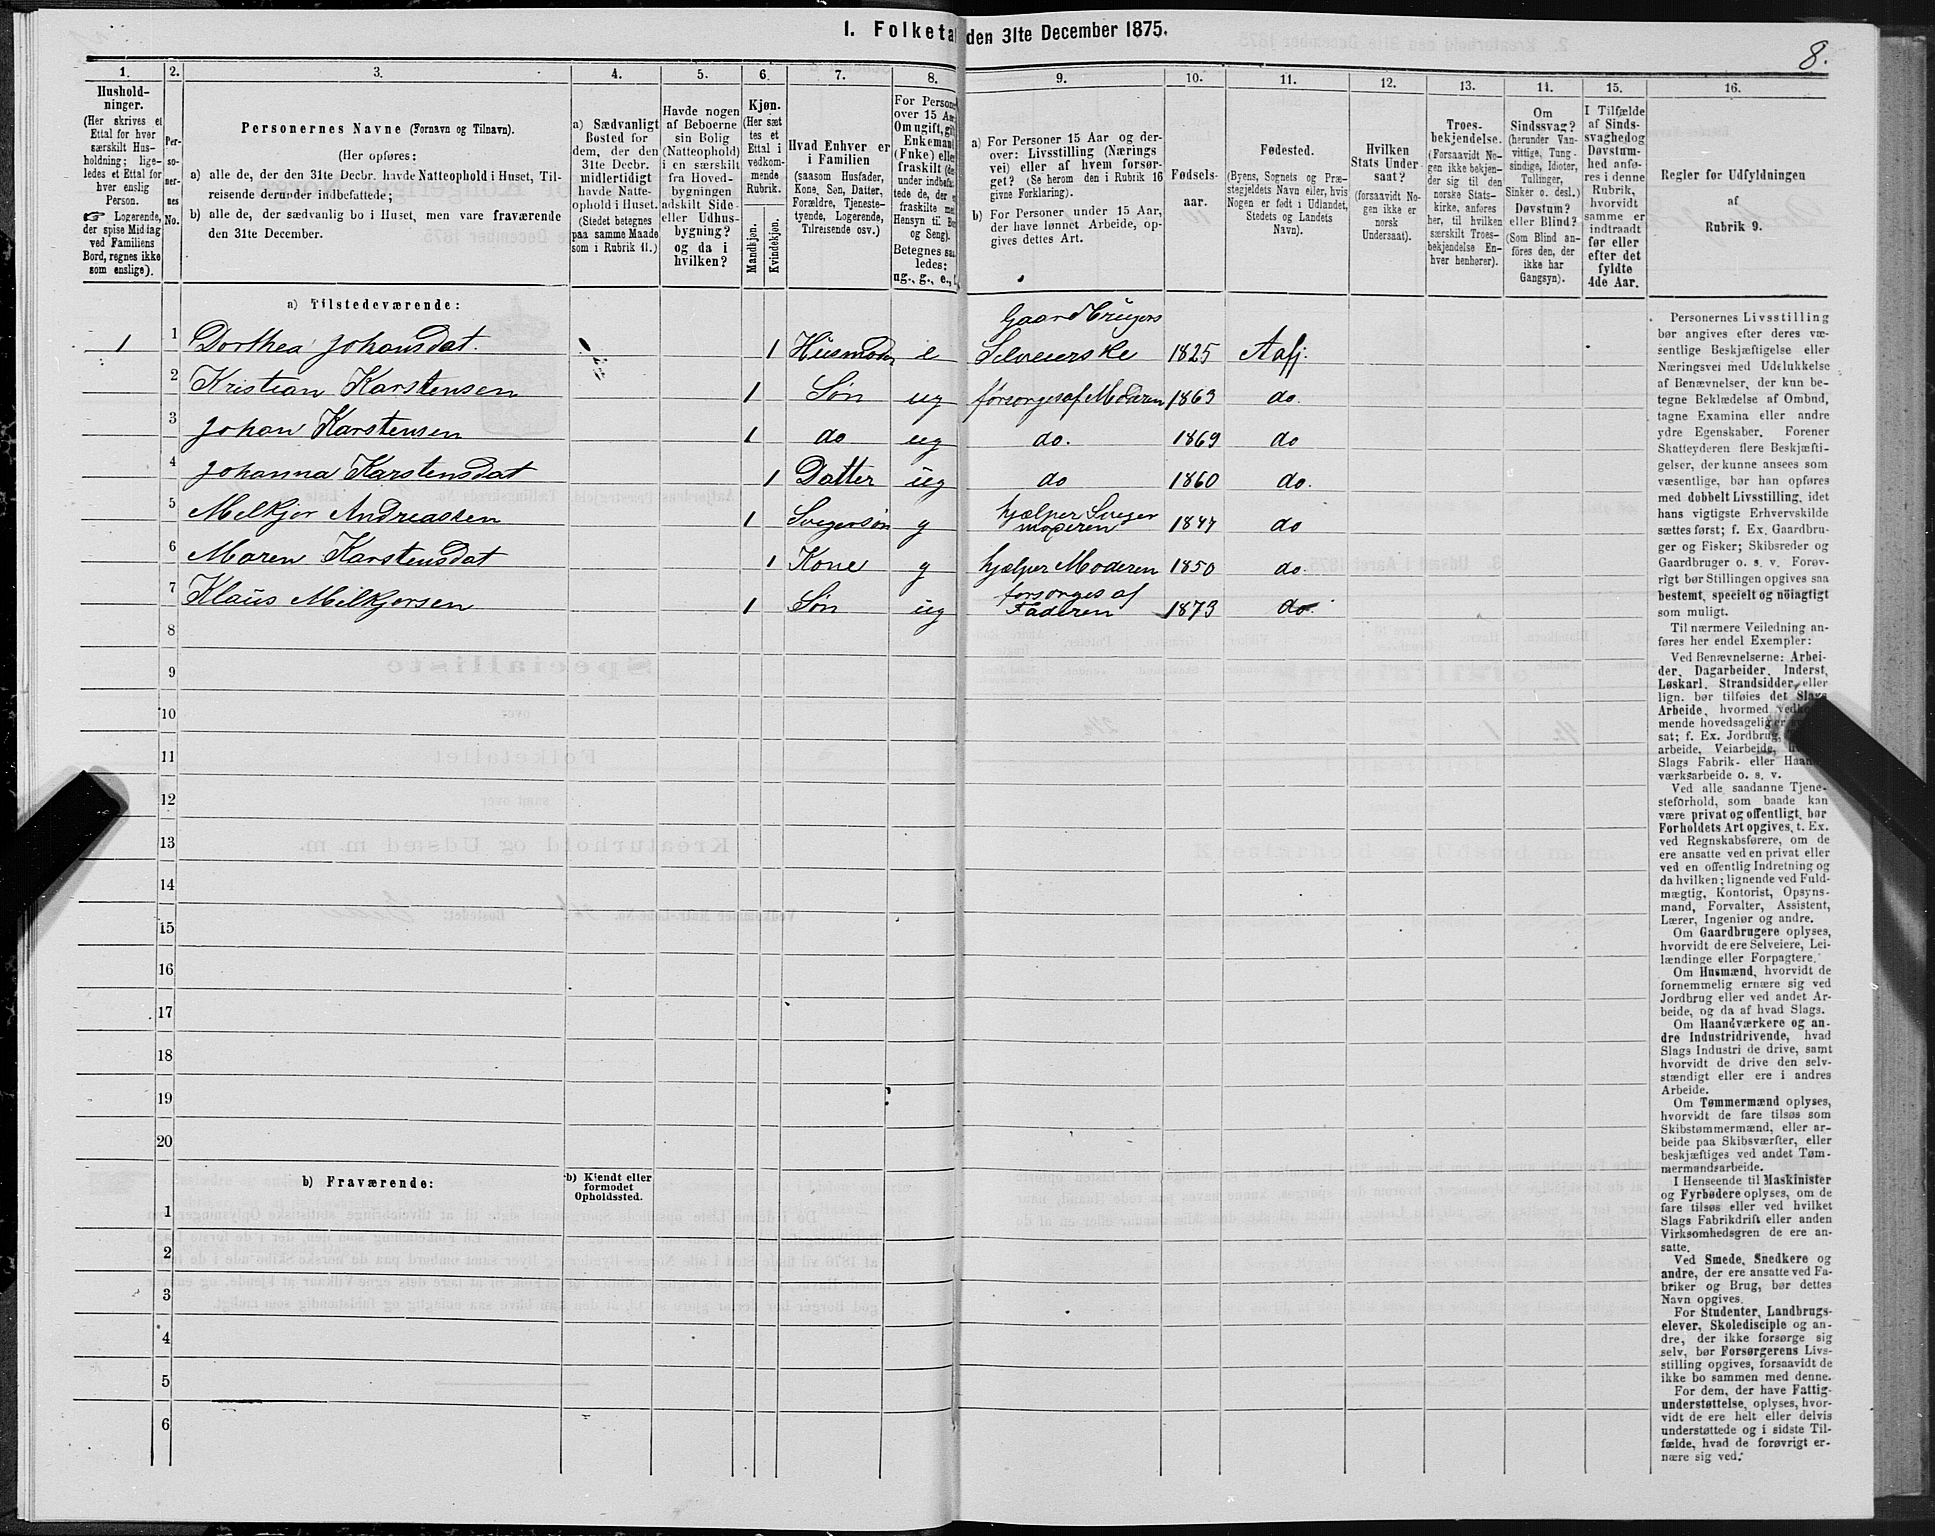 1. Folketa den 31te December 1875.
8.
1.
Hushold-
ninger.
(Her skrives et
Ettal for hver
særskilt Hus-
holdning; lige-
ledes et Ettal for
hver enslig
Person.
☞ Logerende,
der spise Middag
ved Familiens
Bord, regnes ikke
som enslige).
2.
Per-
so-
ner-
nes
No.
3.
Personernes Navne (Fornavn og Tilnavn).
(Her opføres:
a) alle de, der den 31te Decbr. havde Natteophold i Huset, Til-
reisende derunder indbefattede;
b) alle de, der sædvanlig bo i Huset, men vare fraværende
den 31te December.
4.
a) Sædvanligt
Bosted for
dem, der den
31te Decbr.
midlertidigt
havde Natte-
ophold i Huset.
(Stedet betegnes
paa samme Maade
som i Rubrik 11.)
5.
Havde nogen
af Beboerne
sin Bolig
(Natteophold)
i en særskilt
fra Hoved-
bygningen
adskilt Side-
eller Udhus-
bygning?
og da i
hvilken?
6.
Kjøn.
(Her sæt-
tes et
Ettal i
vedkom-
mende
Rubrik.
Mandkjøn.
Kvindekjøn.
7.
Hvad Enhver er
i Familien
(saasom Husfader,
Kone, Søn, Datter,
Forældre, Tjeneste-
tyende, Logerende,
Tilreisende osv.)
8.
For Person
over 15 Aar
Om ugift, gift
Enkemand
(Enke) eller
fraskilt (de
under indbefat
tede de, der e
fraskilte med
Hensyn til Bo
og Seng).
Betegnes saa
ledes:
ug., g., e., f.
9.
a) For Personer 15 Aar og der-
over: Livsstilling (Nærings
vei) eller af hvem forsør-
get? (Se herom den i Rubrik 16
givne Forklaring).
b) For Personer under 15 Aar,
der have lønnet Arbeide, op-
gives dettes Art.
10.
Fødsels-
aar.
11.
Fødested.
(Byens, Sognets og Præ-
stegjeldets Navn eller, hvis
Nogen er født i Udlandet,
Stedets og Landets
Navn).
12.
Hvilken
Stats Under-
saat?
(forsaavidt No-
gen ikke er
norsk
Undersaat).
13.
Troes-
bekjendelse.
(Forsaavidt No-
gen ikke bekjen-
der sig til den
norske Stats-
kirke, anføres
her, til hvilken
særskilt Troes-
bekjendelse En-
hver henhører).
14.
Om
Sindssvag?
(herunder Van-
vittige, Tung-
sindige, Idioter,
Tullinger,
Sinker o. desl.)
Døvstum?
eller Blind?
(Som Blind an-
føres den, der
ikke har
Gangsyn).
15.
I Tilfælde
af Sinds-
svaghed og
Døvstum-
hed anfø-
res i denne
Rubrik,
hvorvidt
samme er
indtraadt
før eller
efter det
fyldte
4de Aar.
16.
Regler for Udfyldningen
af
Rubrik 9.
a) Tilstedeværende:
1 1 Dorthea Johansdat. 1 Husmoder e Gaardbrugers Selveierske 1825 Aafj.
2 Kristian Karstensen 1 Søn ug forsorges af Moderen 1863 do.
3 Johan Karstensen 1 do ug do. 1869 do
4 Johanna Karstensdat 1 Datter ug do 1860 do.
5 Melkjor Andreassen 1 Svigersøn g hjælper Sviger moderen 1847 do
6 Maren Karstensdat 1 Kone g hjælper Moderen 1850 do.
7 Klaus Milkjorsen 1 Søn ug forsorges af Faderen 1873 do.
8
9
10
11
12
13
14
15
16
17
18
19
20
b) Fraværende:
b) Kjendt eller
formodet
Opholdssted.
1
2
3
4
5
6
Personernes Livsstilling
bør angives efter deres væ-
sentlige Beskjæftigelse eller
Næringsvei med Udelukkelse
af Benævnelser, der kun be-
tegne Beklædelse af Ombud,
tagne Examina eller andre
ydre Egenskaber. Forener
Skatteyderen flere Beskjæfti-
gelser, der kunne ansees som
væsentlige, bør han opføres
med dobbelt Livsstilling, idet
hans vigtigste Erhvervskilde
sættes først; f. Ex. Gaardbru-
ger og Fisker; Skibsreder og
Gaardbruger o. s. v. Forøv-
rigt bør Stillingen opgives saa
bestemt, specielt og nöiagtigt
som muligt.
Til nærmere Veiledning an-
føres her endel Exempler:
Ved Benævnelserne: Arbei-
der, Dagarbeider, Inderst,
Løskarl, Strandsidder, eller
lign. bør tilføies det Slags
Arbeide, hvormed vedkom-
mende hovedsagelig er
sat; f. Ex. Jordbrug,
arbeide, Veiarbeide,
Slags Fabrik- eller Haand-
værksarbeide o. s. v.
Ved alle saadanne Tjene-
steforhold, som baade kan
være privat og offentligt, bør
Forholdets Art opgives, t. Ex.
ved Regnskabsførere, om de
ere ansatte ved en privat eller
ved en offentlig Indretning og
da hvilken; lignende ved Fuld-
mægtig, Kontorist, Opsyns-
mand, Forvalter, Assistent,
Lærer, Ingeniør og andre.
Om Gaardbrugere oplyses,
hvorvidt de ere Selveiere, Lei-
lændinge eller Forpagtere.
Om Husmænd, hvorvidt de
fornemmelig ernære sig ved
Jordbrug eller ved andet Ar-
beide, og da af hvad Slags.
Om Haandværkere og an-
dre Industridrivende, hvad
Slags Industri de drive, samt
hvorvidt de drive den selv-
stændigt eller ere i andres
Arbeide.
Om Tømmermænd oplyses,
hvorvidt de fare tilsøs som
Skibstømmermænd, eller ar-
beide paa Skibsværfter, eller
beskjæftiges ved andet Tøm-
mermandsarbeide.
I Henseende til Maskinister
og Fyrbødere oplyses, om de
fare tilsøs eller ved hvilket
Slags Fabrikdrift eller anden
Virksomhedsgren de ere an-
satte.
Ved Smede, Snedkere og
andre, der ere ansatte ved Fa-
briker og Brug, bør dettes
Navn opgives.
For Studenter, Landbrugs-
elever, Skoledisciple og an-
dre, der ikke forsørge sig
selv, bør Forsørgerens Livs-
stilling opgives, forsaavidt de
ikke bo sammen med denne.
For dem, der have Fattig-
understøttelse, oplyses, hvor-
vidt de ere helt eller delvis
understøttede og i sidste Til-
fælde, hvad de forøvrigt er-
nære sig ved.